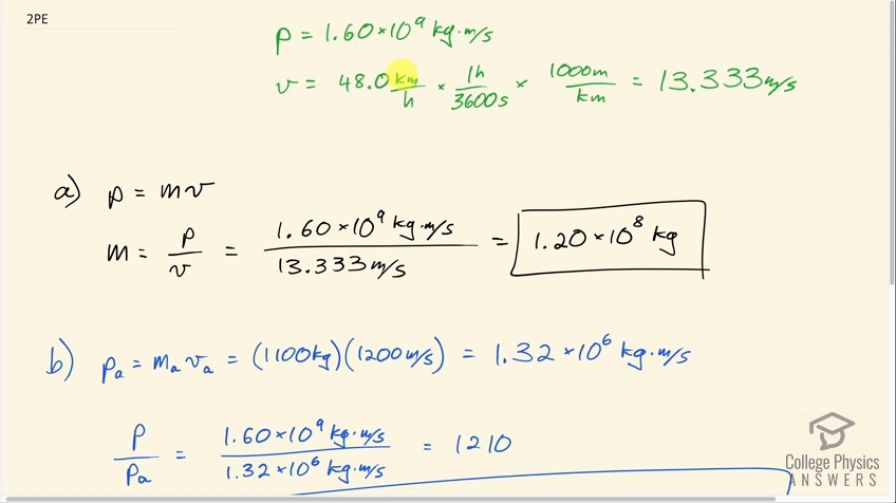 2PE
p = 1.60×10⁹ kg·m/s
v = 48.0 km/h × 1h/3600s × 1000m/km = 13.333 m/s
a) p = mv
m = p/v = 1.60×10⁹ kg·m/s / 13.333 m/s = 1.20×10⁸ kg
b) pₐ = mₐvₐ = (1100kg)(1200 m/s) = 1.32×10⁶ kg·m/s
p/pₐ = 1.60×10⁹ kg·m/s / 1.32×10⁶ kg·m/s = 1210
College Physics
ANSWERS